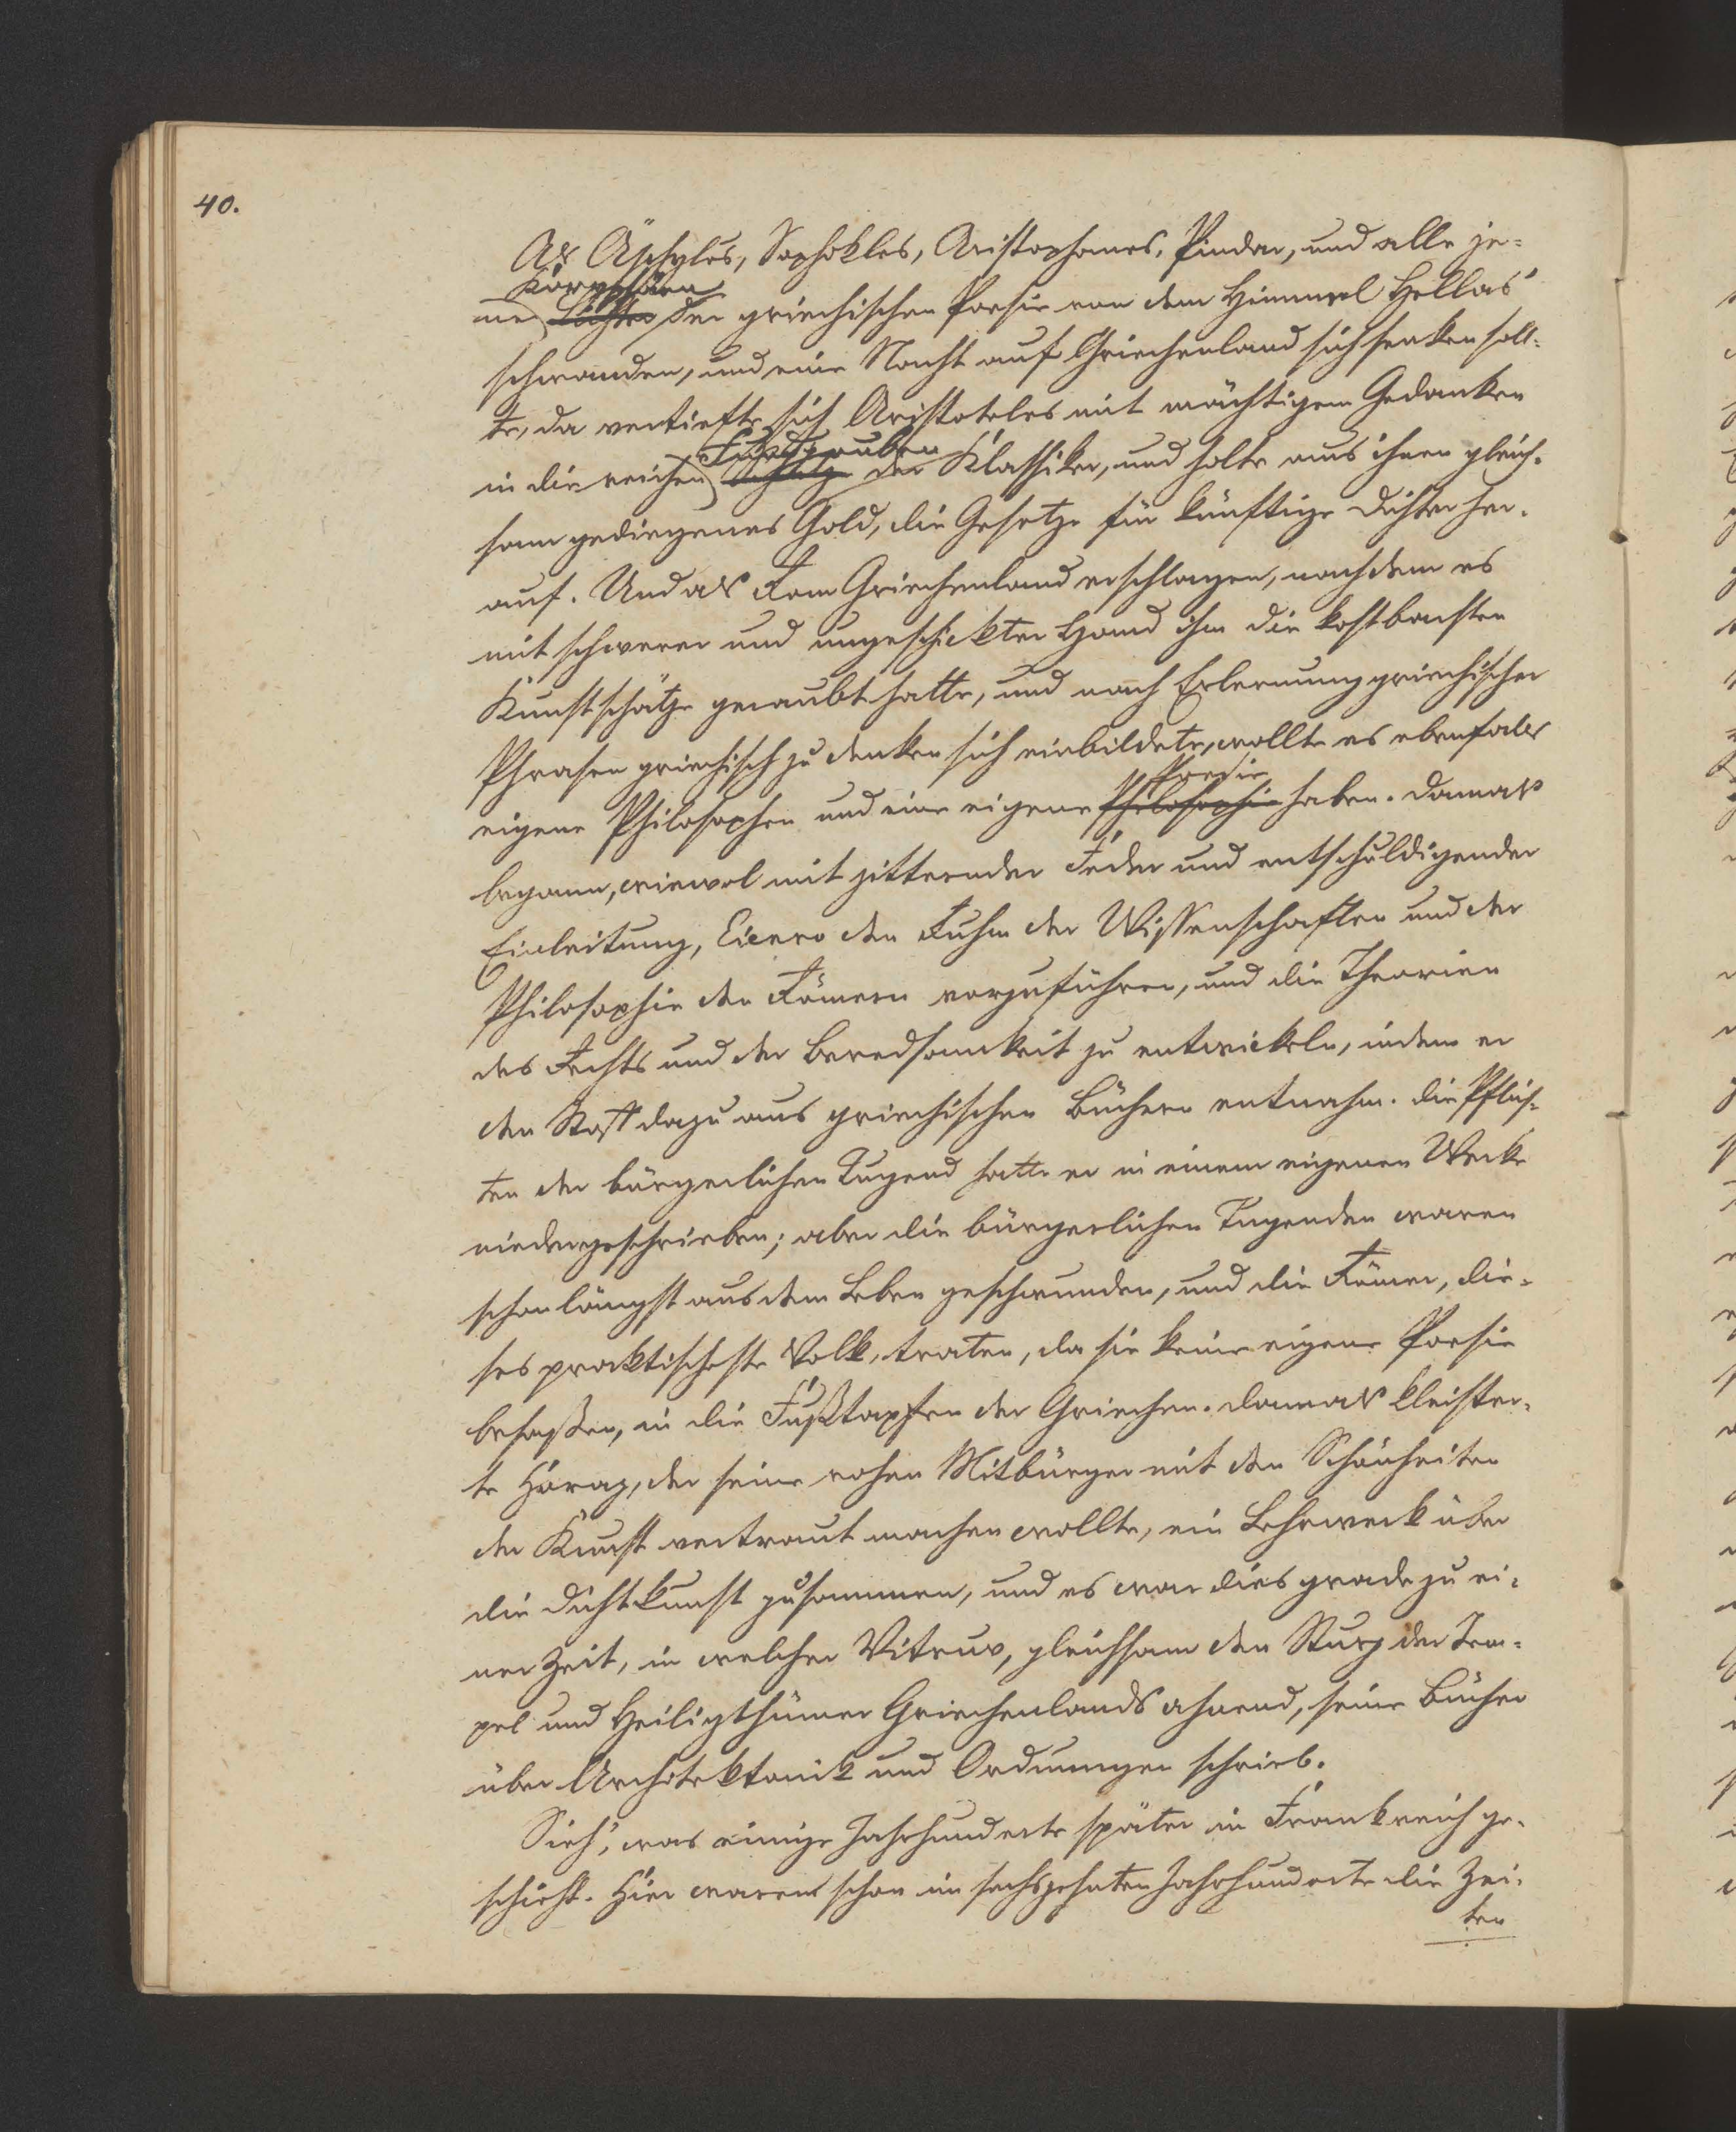 40.
Als Äschylus, Sophokles, Aristophanes, Pindar, und alle je-
Koryphäen
ne Lichter der griechischen Poesie von dem Himmel Hellas'
schwanden, und eine Nacht auf Griechenland sich senken soll-
te, da vertiefte sich Aristoteles mit mächtigem Gedanken
Fundgruben
in die reichen Schätze der Klassiker, und holte aus ihnen gleich-
sam gediegenes Gold, die Gesetze für künftige Dichter her-
auf. Und als Rom Griechenland erschlagen, nachdem es
mit schwerer und ungeschickter Hand ihm die kostbarsten
Kunstschätze geraubt hatte, und nach Erlernung griechischer
Phrasen griechisch zu denken sich einbildete, wollte es ebenfals
Poesie
eigene Philosophen und eine eigene Philosophie haben. Damals
begann, wiewol mit zitternder Feder und entschuldigender
Einleitung, Cicero den Ruhm der Wissenschaften und der
Philosophie den Römern vorzuführen, und die Theorien
des Rechts und der Beredsamkeit zu entwickeln, indem er
den Stoff dazu aus griechischen Büchern entnahm. Die Pflich-
ten der bürgerlichen Tugend hatte er in einem eigenen Werke
niedergeschrieben; aber die bürgerlichen Tugenden waren
schon längst aus dem Leben geschwunden, und die Römer, die-
ses praktischeste Volk, traten, da sie keine eigene Poesie
besaßen, in die Fußtapfen der Griechen. Damals kleister-
te Horaz, der seine rohen Mitbürger mit den Schönheiten
der Kunst vertraut machen wollte, ein Lehrwerk über
die Dichtkunst zusammen, und es war dies grade zu ei-
ner Zeit, in welcher Vitruv, gleichsam den Sturz der Tem-
pel und Heiligthümer Griechenlands ahnend, seine Bücher
über Architektonik und Ordnungen schrieb.
Sieh', was einige Jahrhunderte später in Frankreich ge-
schieht. Hier waren schon im sechszehnten Jahrhunderte die Zei-
ten